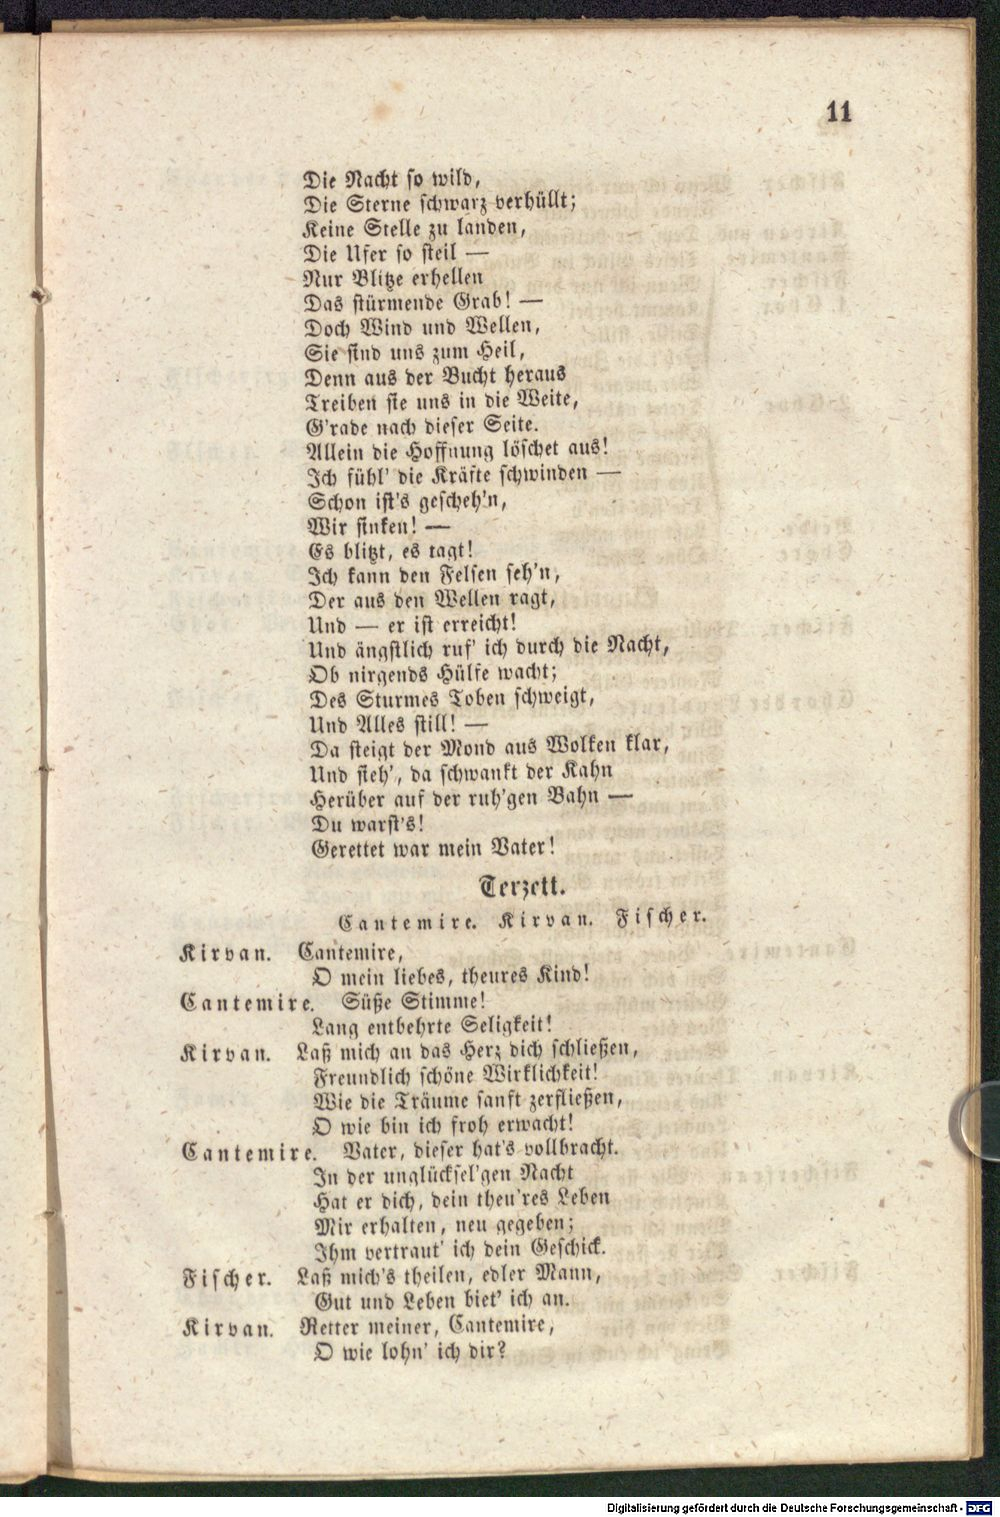 11
Die Nacht so wild,
Die Sterne schwarz verhüllt;
Keine Stelle zu landen,
Die Ufer so steil —
Nur Blitze erhellen
Das stürmende Grab! —
Doch Wind und Wellen,
Sie sind uns zum Heil,
Denn aus der Bucht heraus
Treiben sie uns in die Weite,
G'rade nach dieser Seite.
Allein die Hoffnung löschet aus!
Ich fühl' die Kräfte schwinden —
Schon ist's gescheh'n,
Wir sinken! —
Es blitzt, es tagt!
Ich kann den Felsen seh'n,
Der aus den Wellen ragt,
Und — er ist erreicht!
Und ängstlich ruf' ich durch die Nacht,
Ob nirgends Hülfe wacht;
Des Sturmes Toben schweigt,
Und Alles still! —
Da steigt der Mond aus Wolken klar,
Und sieh', da schwankt der Kahn
Herüber auf der ruh'gen Bahn —
Du warst's!
Gerettet war mein Vater!
Terzett.
Cantemire. Kirvan. Fischer.
Kirvan. Cantemire,
O mein liebes, theures Kind!
Cantemire. Süße Stimme!
Lang entbehrte Seligkeit!
Kirvan. Laß mich an das Herz dich schließen,
Freundlich schöne Wirklichkeit!
Wie die Träume sanft zerfließen,
O wie bin ich froh erwacht!
Cantemire. Vater, dieser hat's vollbracht.
In der unglücksel'gen Nacht
Hat er dich, dein theu'res Leben
Mir erhalten, neu gegeben;
Ihm vertraut' ich dein Geschick.
Fischer. Laß mich's theilen, edler Mann,
Gut und Leben biet' ich an.
Kirvan. Retter meiner, Cantemire,
O wie lohn' ich dir?
Digitalisierung gefördert durch die Deutsche Forschungsgemeinschaft - DFG